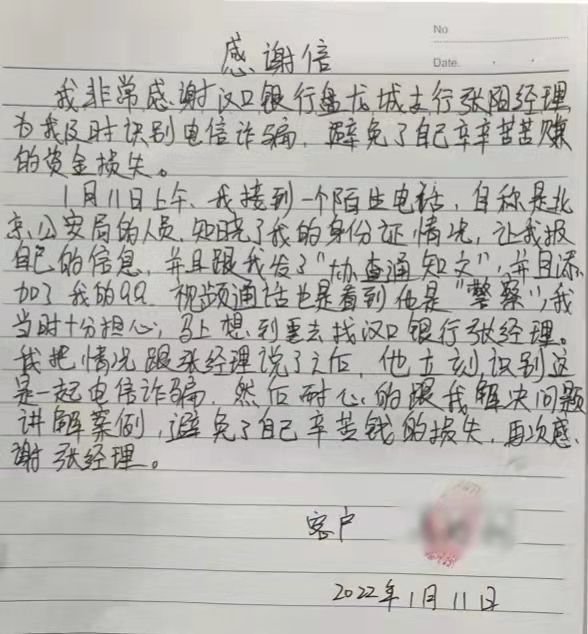 No
Date.
感谢信
我非常感谢汉口银行盘龙城支行张阳经理
为我及时识别电信诈骗，避免了自己辛辛苦苦赚
的资金损失。
1月11日上午、我接到一个陌生电话，自称是北
京公安局的人员，知晓了我的身份证情况，让我报
自己的信息，并且跟我发了“协查通知文”，并且添
加了我的QQ，视频通话也是看到他是“警察”，我
当时十分担心，马上想到要去找汉口银行张经理。
我把情况跟张经理说了之后，他立刻识别这
是一起电信诈骗，然后耐心的跟我解决问题
讲解案例，避免了自己辛苦钱的损失，再次感
谢张经理。
客户
2022年1月11日